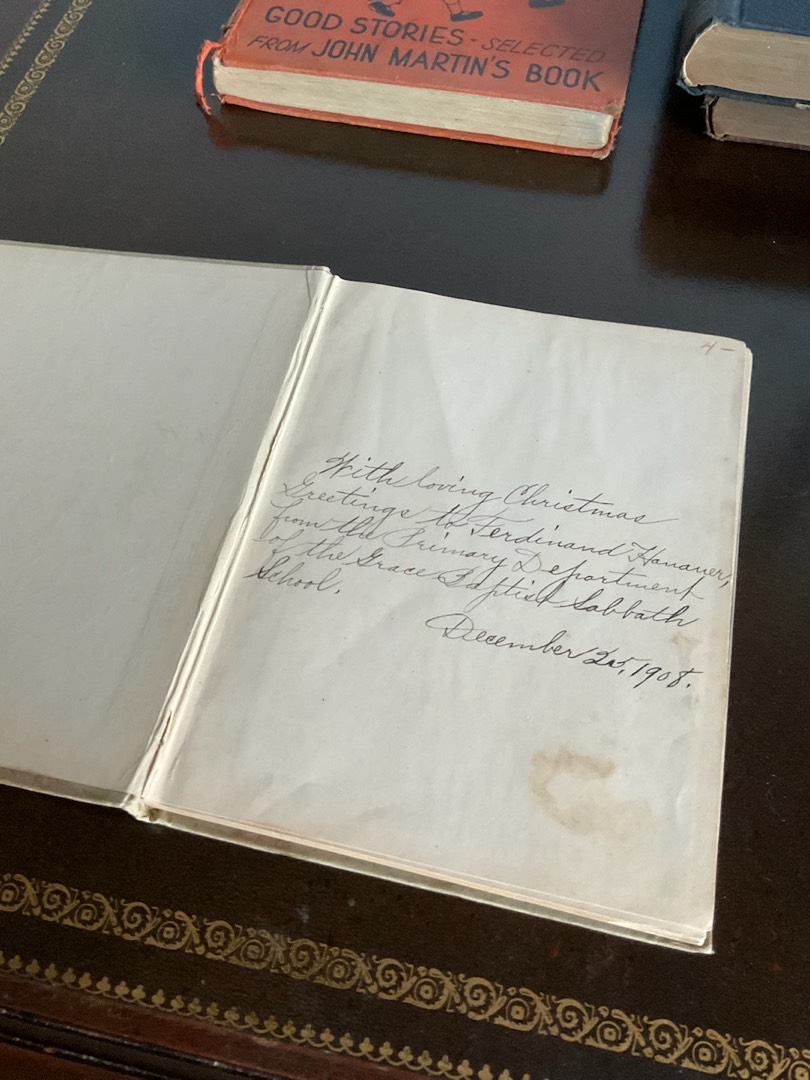 GOOD STORIES - SELECTED
FROM JOHN MARTIN'S BOOK
4-
With loving Christmas
Greetings to Ferdinand Hanauer,
from the Primary Department
of the Grace Baptist Sabbath
School.
December 25, 1908.